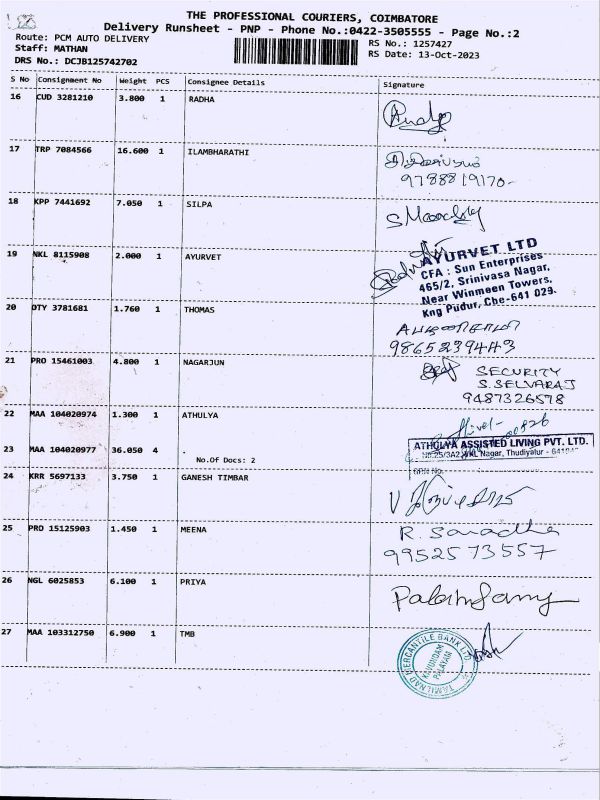 THE PROFESSIONAL COURIERS, COIMBATORE
Delivery Runsheet - PNP - Phone No.:0422-3505555 - Page No.:2
Route: PCM AUTO DELIVERY
RS No.: 1257427
Staff: MATHAN
RS Date: 13-Oct-2023
DRS No.: DCJB125742702
S No Consignment No Weight PCS Consignee Details Signature
16 CUD 3281210 3.800 1 RADHA
17 TRP 7084566 16.600 1 ILAMBHARATHI
9788819170
18 KPP 7441692 7.050 1 SILPA
19 NKL 8115908 2.000 1 AYURVET
AYURVET LTD
CFA : Sun Enterprises
465/2, Srinivasa Nagar,
Near Winmeen Towers,
Kng Pudur, Cbe-641 029.
20 DTY 3781681 1.760 1 THOMAS
9865239443
21 PRO 15461003 4.800 1 NAGARJUN
SECURITY
S.SELVARAJ
9487326578
22 MAA 104020974 1.300 1 ATHULYA
23 MAA 104020977 36.050 4
No.Of Docs: 2
ATHULYA ASSISTED LIVING PVT. LTD.
Nagar, Thudiyalur -
24 KRR 5697133 3.750 1 GANESH TIMBAR
25 PRO 15125903 1.450 1 MEENA
R. Saradha
9952573557
26 NGL 6025853 6.100 1 PRIYA
27 MAA 103312750 6.900 1 TMB
TAMILNAD MERCANTILE BANK LTD.